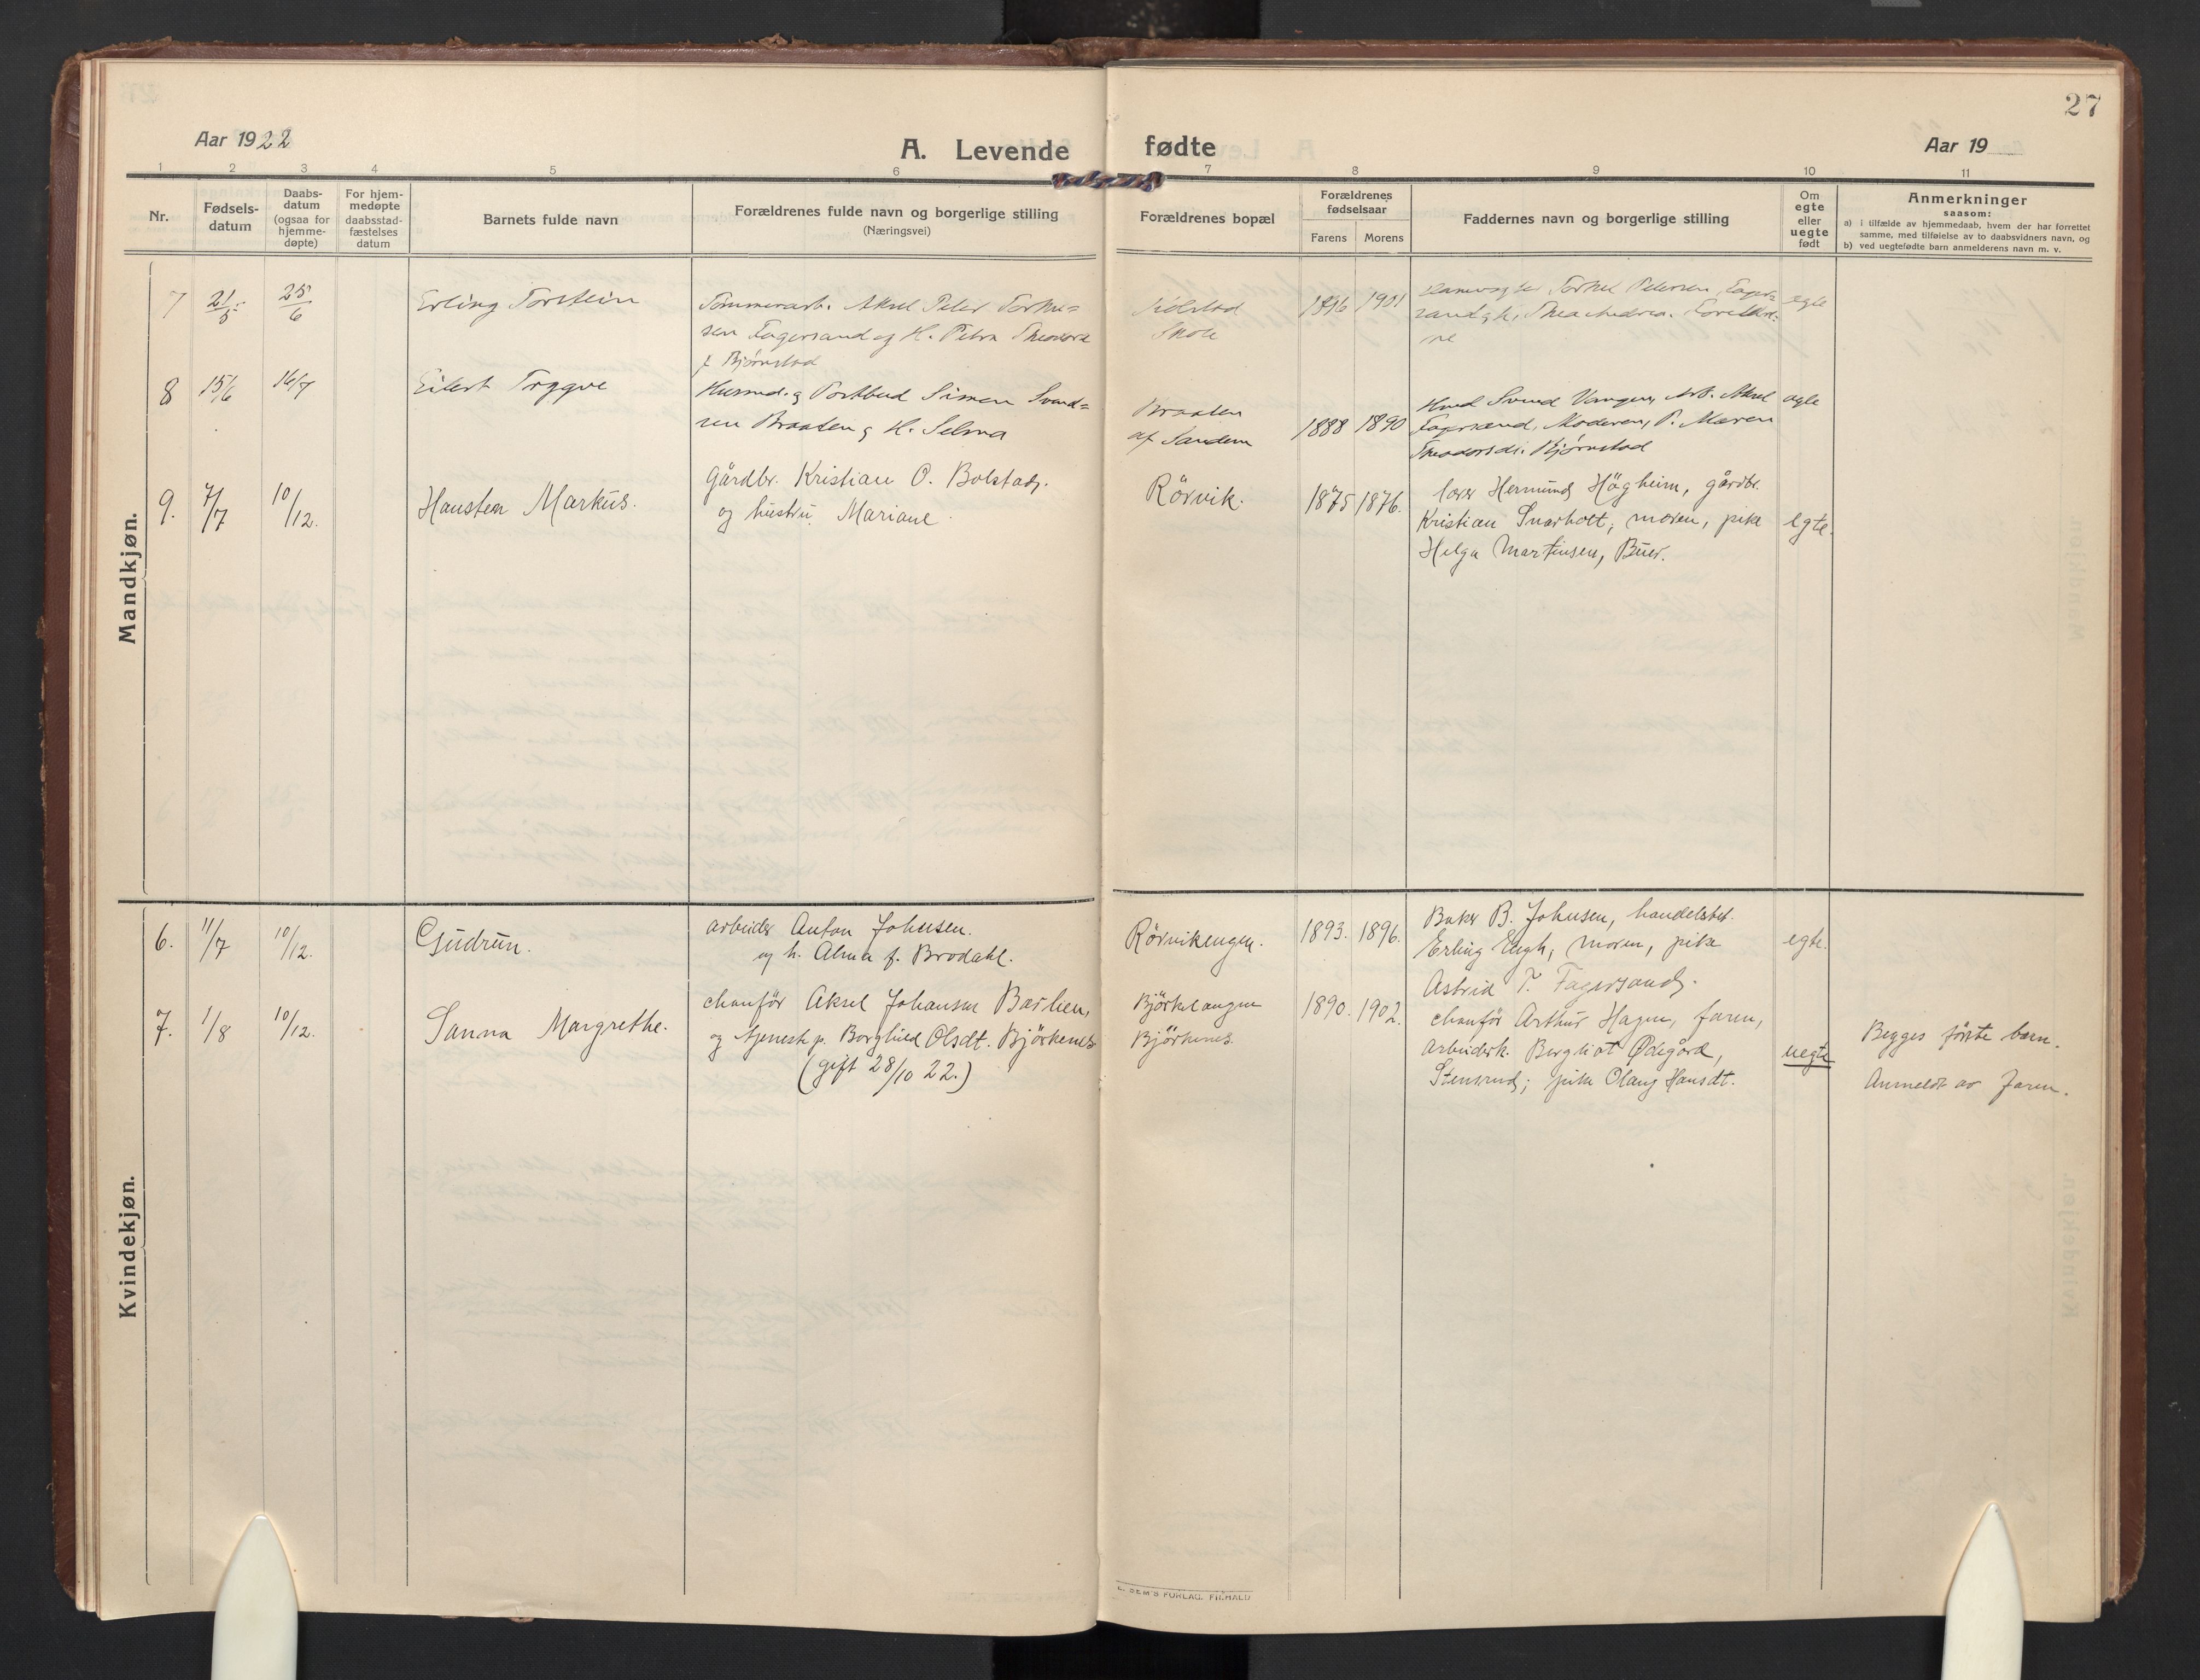 27
Aar 1922
A. Levende fødte
Aar 19
1 2 3 4 5 6 7 8 9 10 11
Nr.
Fødsels-
datum
Daabs-
datum
(ogsaa for
hjemme-
døpte)
For hjem-
medøpte
daabsstad-
fæstelses
datum
Barnets fulde navn
Forældrenes fulde navn og borgerlige stilling
(Næringsvei)
Forældrenes bopæl
Forældrenes
fødselsaar
Farens Morens
Faddernes navn og borgerlige stilling
Om
egte
eller
uegte
født
Anmerkninger
saasom:
a) i tilfælde av hjemmedaab, hvem der har forrettet
samme, med tilføielse av to daabsvidners navn, og
b) ved uegtefødte barn anmelderens navn m. v.
Mandkjøn.
7 21/5 25/6 Erling Torstein
Tømmerarb. Aksel Peter
Fagersand og H. Petra Theodora
f. Bjørnstad
Skole
1896 1901
Petersen, Fager-
sand, Thea Andrea.
egte
8 15/6 16/7 Eilert Trygve
Husmd. og Postbud Simen Svend-
sen Braaten og H. Selma
Braaten
af Sandem
1888 1890
Svend Vangen, Arb. Aksel
Fagersand, Moderen, P. Maren
Bjørnstad
egte
9. 7/7 10/12. Hansten Markus.
Gårdbr. Kristian O. Bolstad,
og hustru Mariane
Rörvik.
1875 1876.
lærer Hermund Högheim, gårdbr.
Kristian Snarholt, moren, pike
Helga Martinsen, Buer.
egte.
Kvindekjøn.
6. 11/7 10/12. Gudrun.
arbeider Anton Johnsen.
og h. Alma f. Brodahl.
Rörvikengen.
1893. 1896.
Baker B. Johnsen, handelsbet.
Erling Engh, moren, pike
Astrid T. Fagersand.
egte.
7. 1/8 10/12. Sanna Margrethe.
chauför Aksel Johansen Barlien,
og tjenest p. Borghild Olsdt. Björkenes
(gift 28/10 22.)
Björkelangen
Björkenes.
1890. 1902.
chauför Arthur Hagen, faren,
arbeidsk. Bergliot Ødegård,
Stensrud; pike Olaug Hansdt.
uegte
Begges förste barn.
Anmeldt av faren.
SEM'S FORLAG, FR.HALD